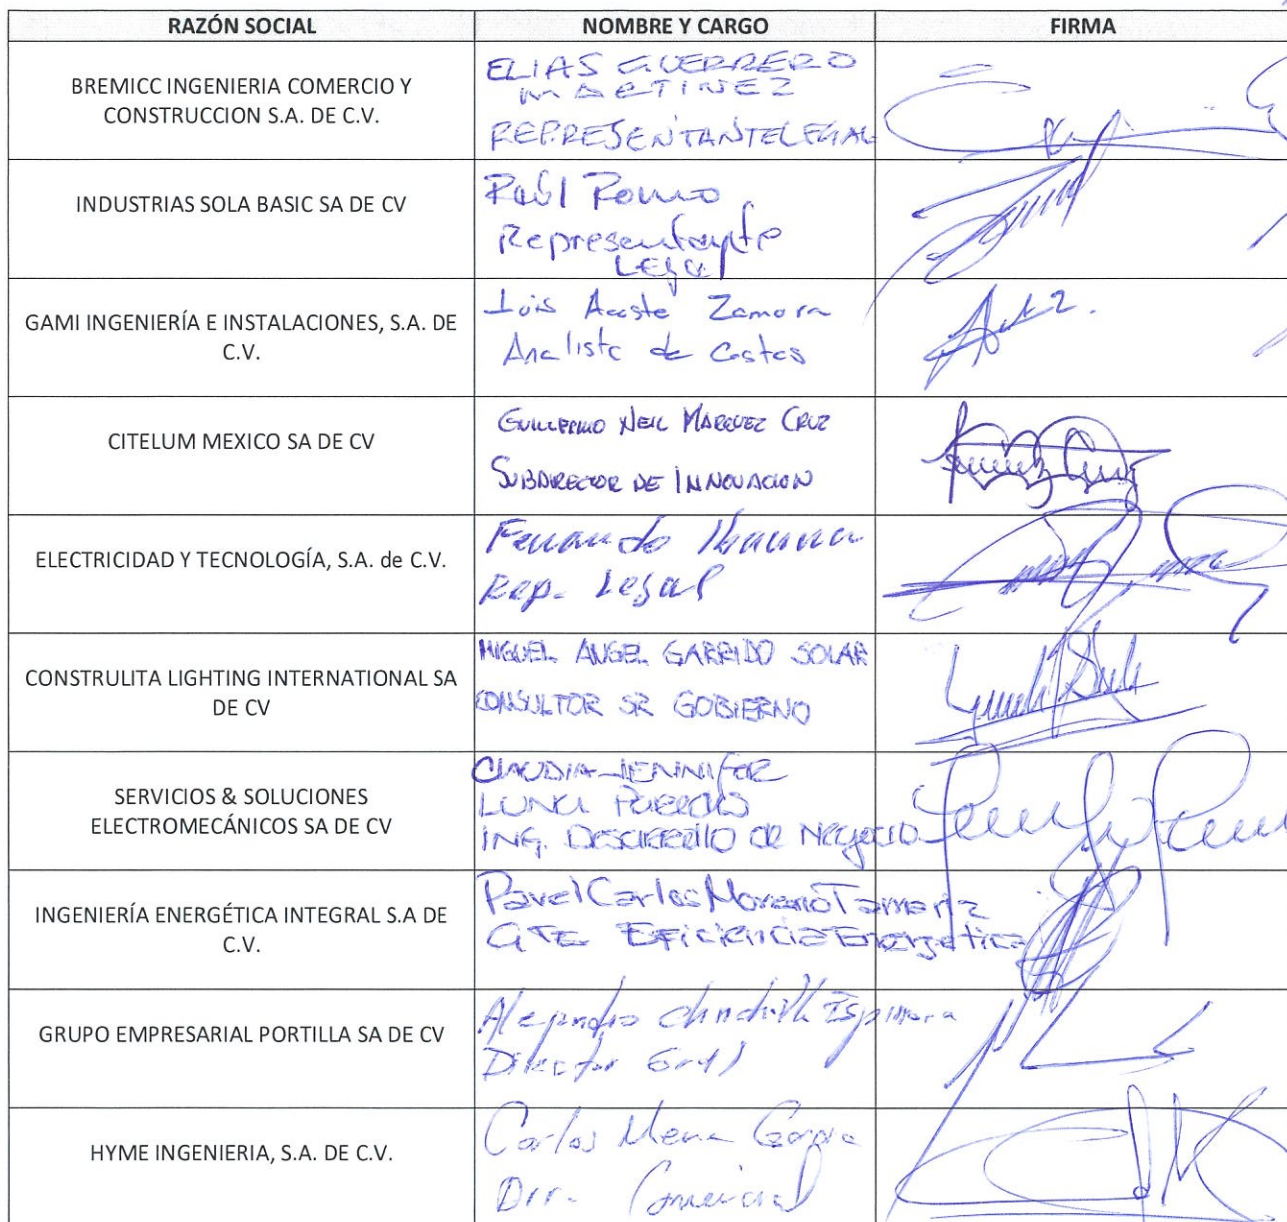 RAZÓN SOCIAL NOMBRE Y CARGO FIRMA
BREMICC INGENIERIA COMERCIO Y
CONSTRUCCION S.A. DE C.V.
ELIAS GUERRERO
MARTINEZ
REPRESENTANTE LEGAL
INDUSTRIAS SOLA BASIC SA DE CV
Raúl Romo
Representante
Legal
GAMI INGENIERÍA E INSTALACIONES, S.A. DE
C.V.
Luis Zamora
Analista de Costos
CITELUM MEXICO SA DE CV
GUILLERMO NEIL MARQUEZ CRUZ
SUBDIRECTOR DE INNOVACION
ELECTRICIDAD Y TECNOLOGÍA, S.A. de C.V.
Fernando
Rep. Legal
CONSTRULITA LIGHTING INTERNATIONAL SA
DE CV
MIGUEL ANGEL GARRIDO SOLAR
CONSULTOR SR GOBIERNO
SERVICIOS & SOLUCIONES
ELECTROMECÁNICOS SA DE CV
CLAUDIA JENNIFER
LUNA
ING. DESARROLLO DE NEGOCIO
INGENIERÍA ENERGÉTICA INTEGRAL S.A DE
C.V.
Pavel Carlos Moreno Tamariz
GTE Eficiencia Energetica
GRUPO EMPRESARIAL PORTILLA SA DE CV
Alejandro Espinosa
Director Gral
HYME INGENIERIA, S.A. DE C.V.
Carlos Mena
Dir. Comercial